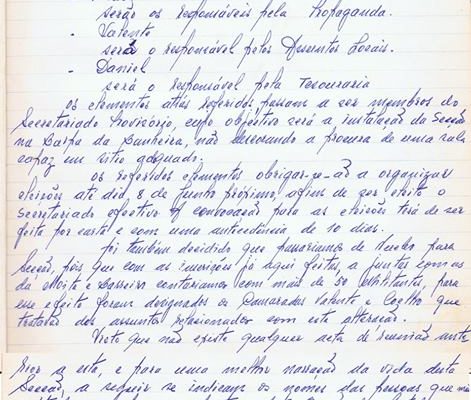 serão os responsáveis pela Propaganda.
- Valente
será o responsável pelos Assuntos Locais.
- Daniel
será o responsável pela Tesouraria
os elementos atrás referidos passam a ser membros do
Secretariado Provisório, cujo objectivo será a instalação da Secção
na Baixa da Banheira, não descurando a procura de uma sala
capaz em sitio adequado.
os referidos elementos obrigar-se-ão a organizar
eleições até dia 8 de Junho próximo, afim de ser eleito o
Secretariado efectivo convocação para as eleições terá de ser
feita por carta e com uma antecedência de 10 dias.
foi também decidido que passariamos de Nucleo para
Secção, pois que com as inscrições já aqui feitas, a juntar com as
da Moita e Barreiro contariamos com mais de 50 militantes, para
esse efeito foram designados os Camaradas Valente e Coelho que
tratarão dos assuntos relacionados com esta alteração.
Visto que não existe qualquer acta de reunião ante
rior a esta, e para uma melhor narração da vida desta
Secção, a seguir se indicam os nomes das pessoas que